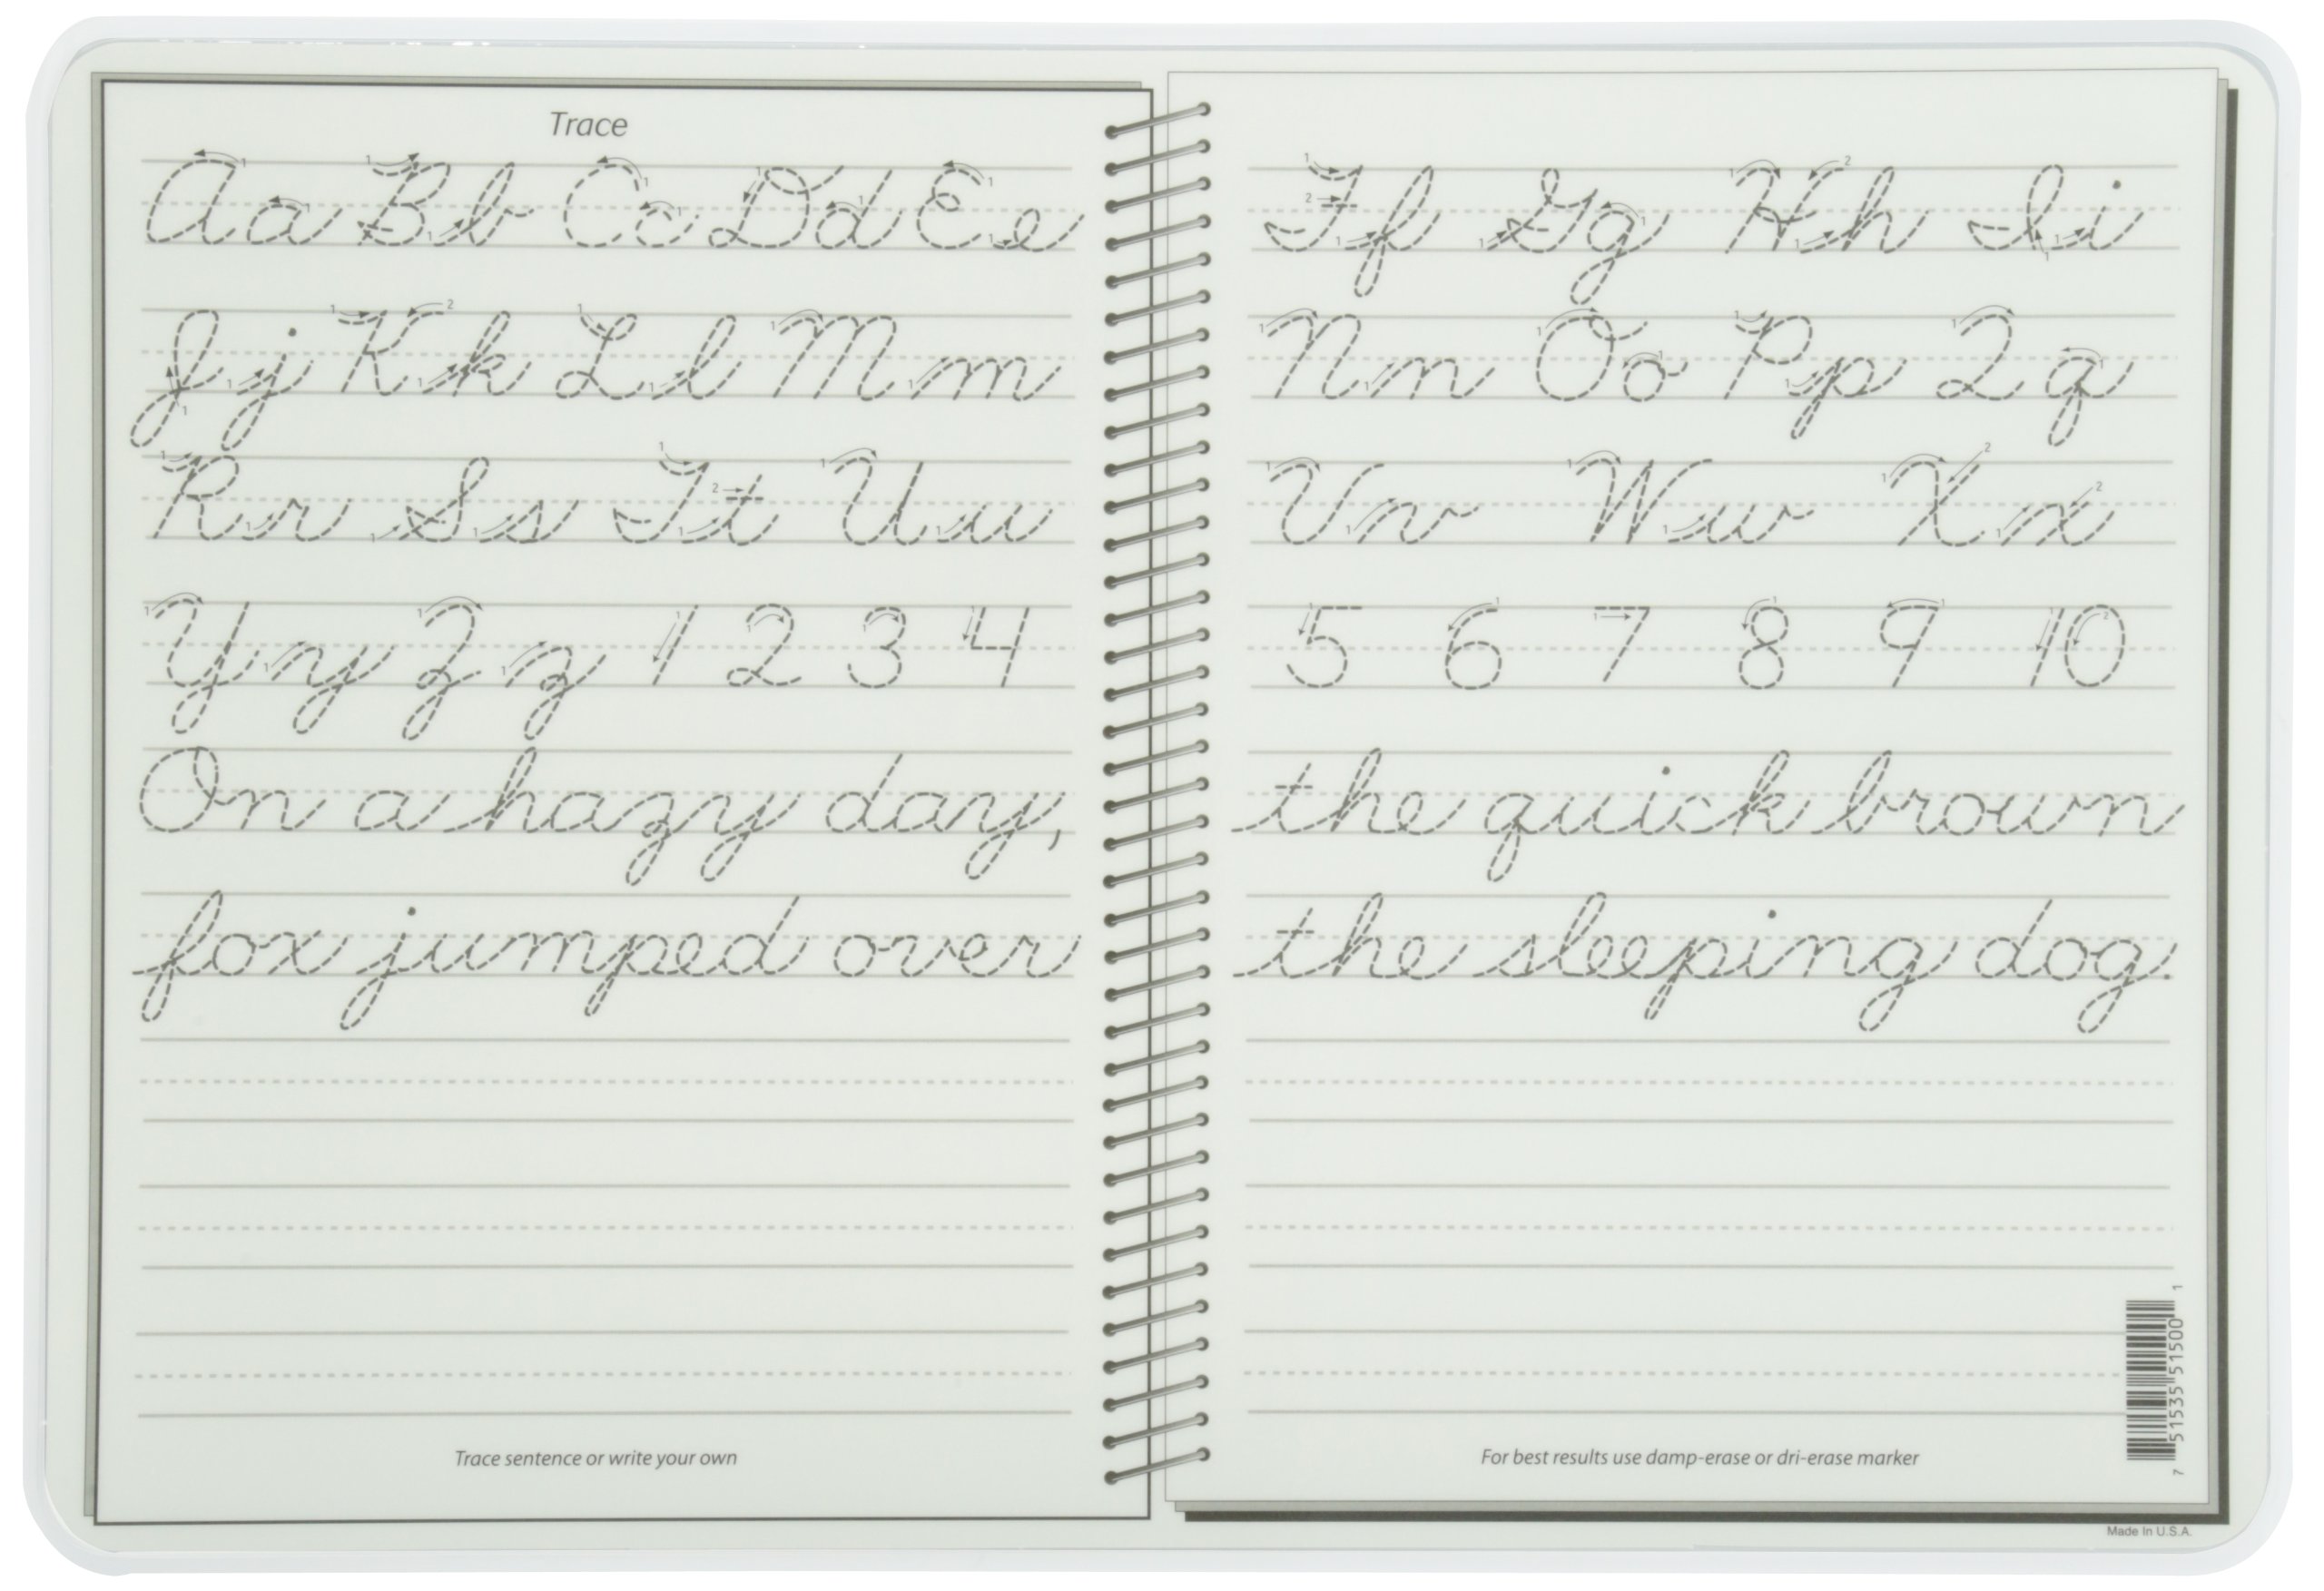 Trace
Aa Bb Cc Dd Ee Ff Gg Hh Ii
Jj Kk Ll Mm Nn Oo Pp Qq
Rr Ss Tt Uu Vv Ww Xx
Yy Zz 1 2 3 4 5 6 7 8 9 10
On a hazy day, the quick brown
fox jumped over the sleeping dog.
Trace sentence or write your own
For best results use damp-erase or dri-erase marker
7 51535 51500 1
Made In U.S.A.